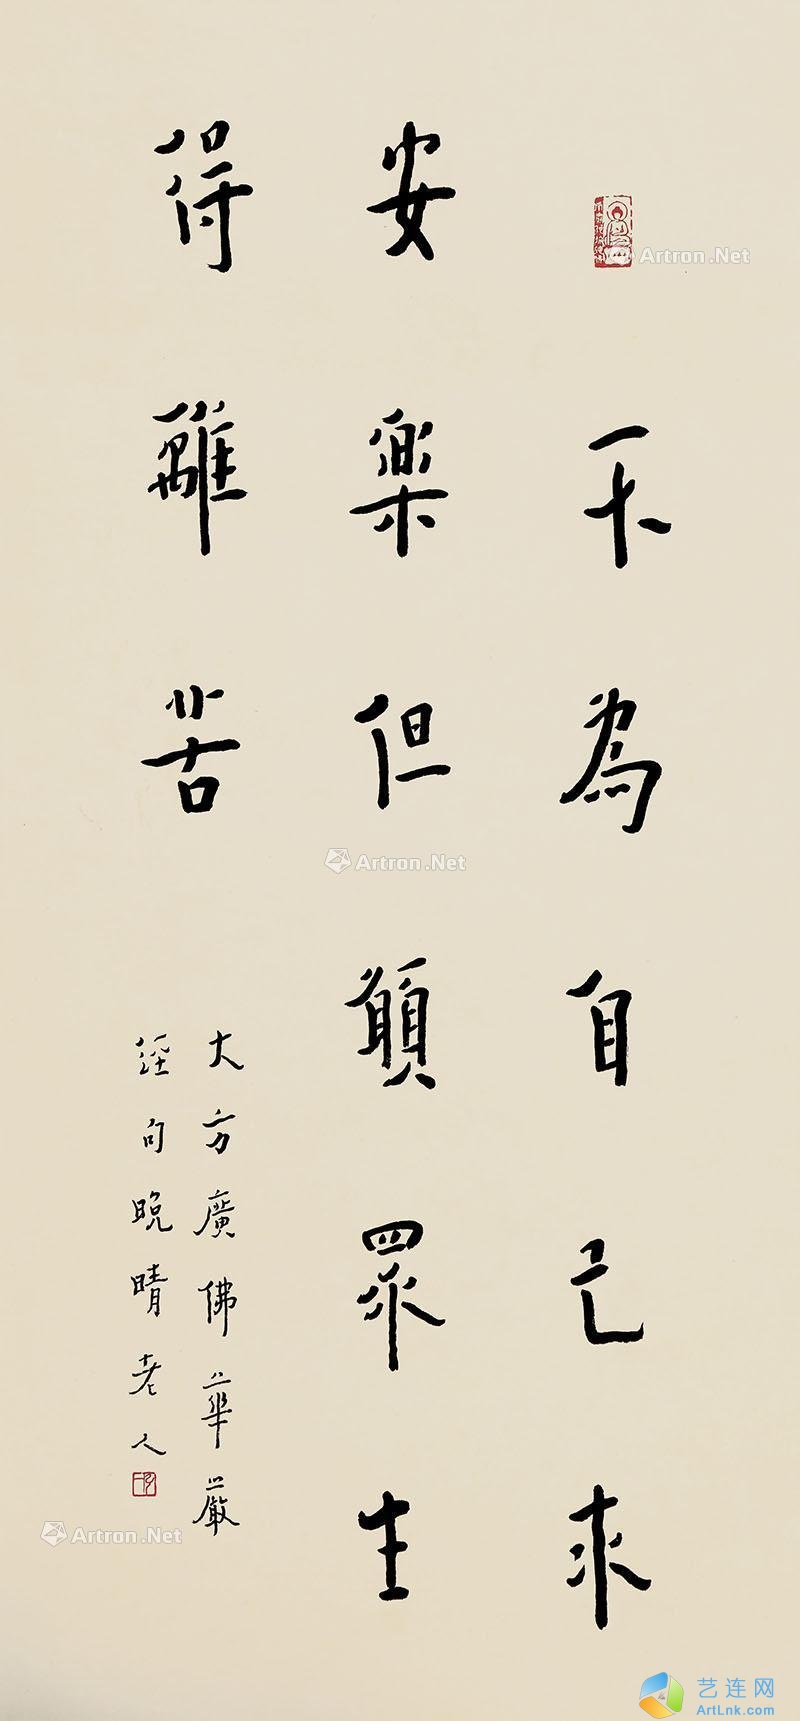 不為自己求
安樂但願眾生
得離苦
大方廣佛華嚴
經句晚晴老人
Artron.Net
Artron.Net
Artron.Net
艺连网
ArtLnk.com